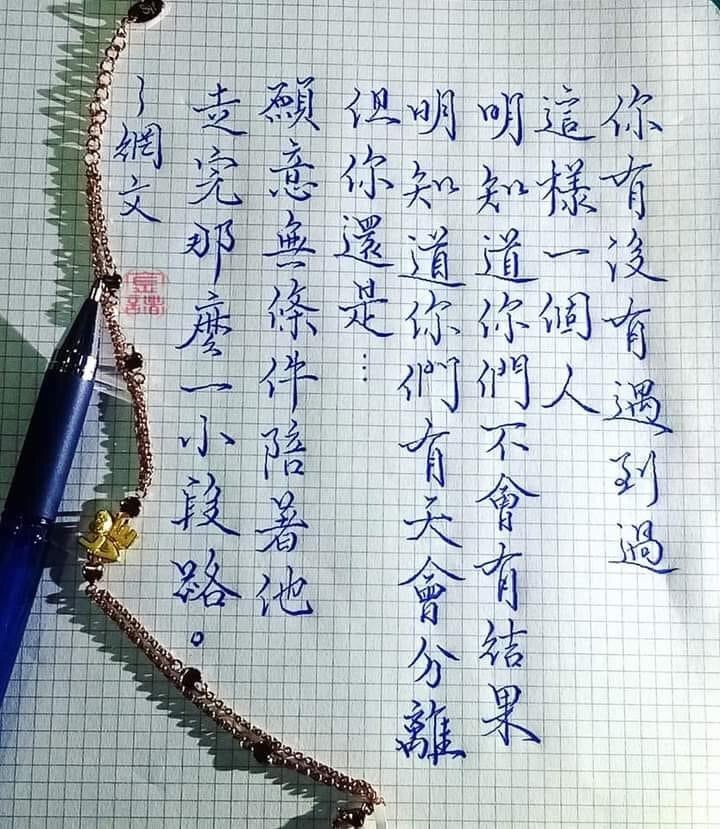 你有沒有遇到過
這樣一個人
明知道你們不會有結果
明知道你們有天會分離
但你還是…
願意無條件陪著他
走完那麼一小段路。
~網文